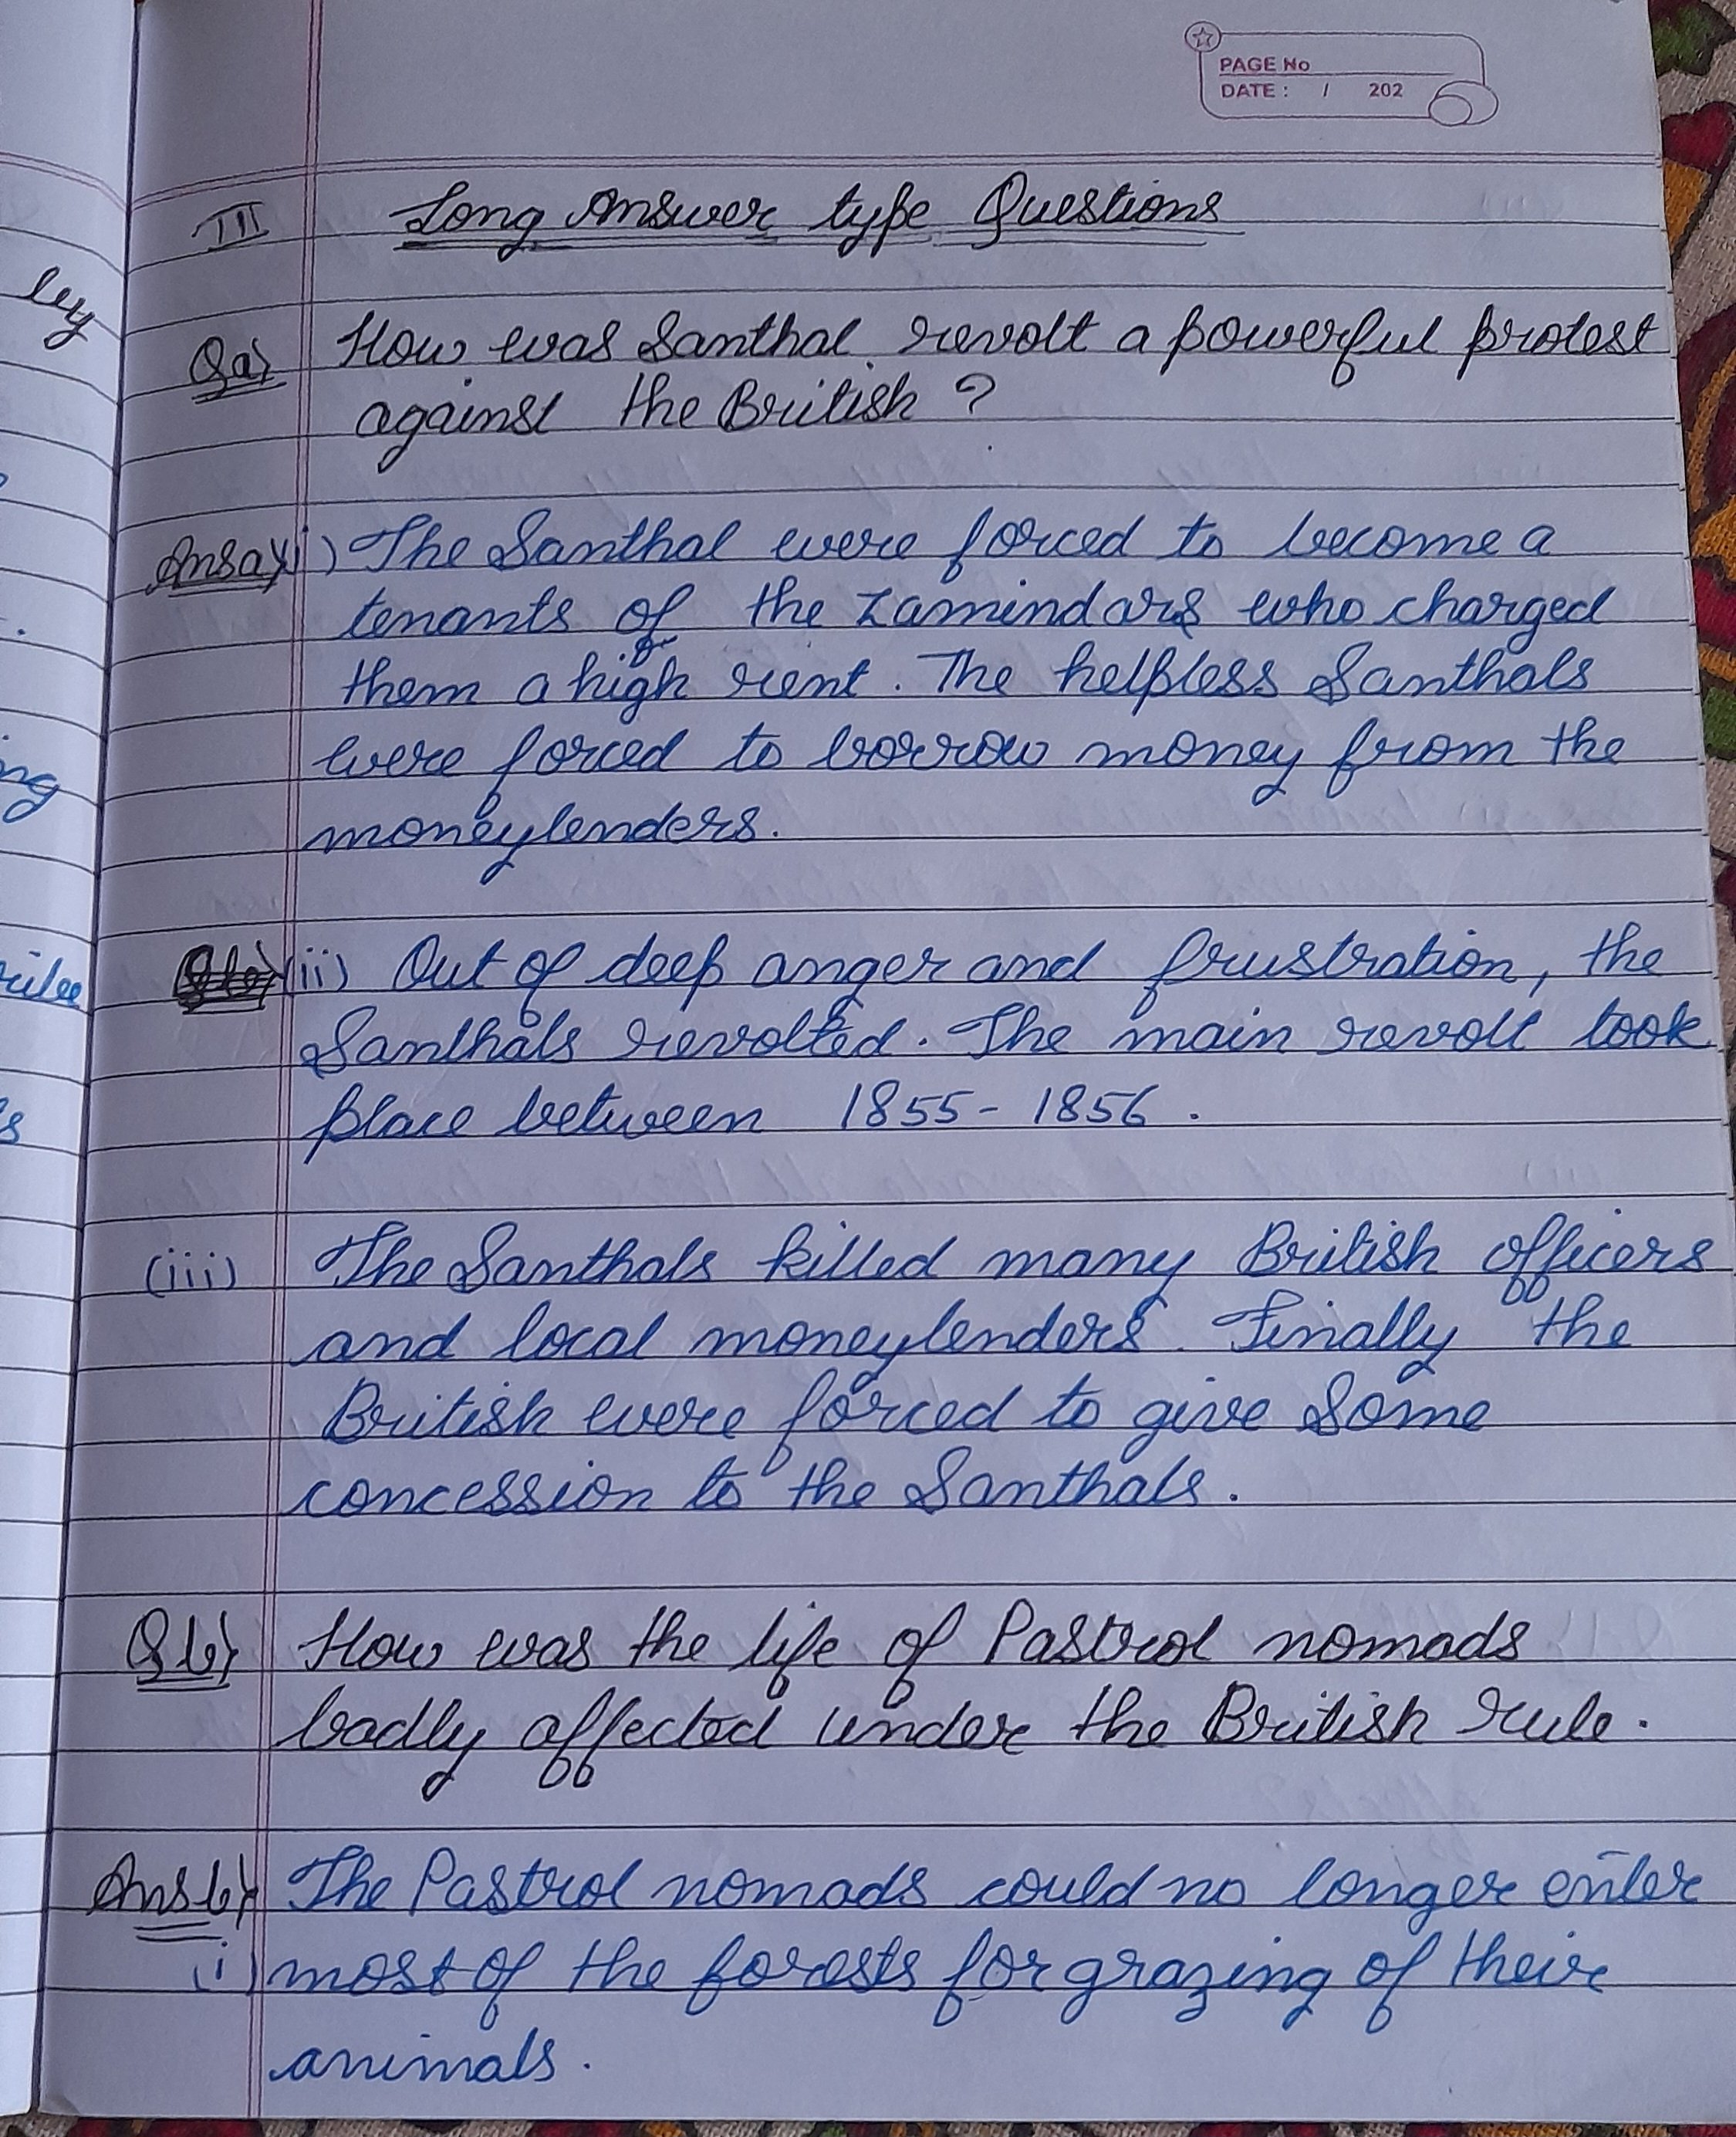 PAGE No
DATE : / 202
III Long Answer type Questions
Qa) How was Santhal revolt a powerful protest
against the British ?
Ans a) i) The Santhal were forced to become a
tenants of the zamindars who charged
them a high rent. The helpless Santhals
were forced to borrow money from the
moneylenders.
(ii) Out of deep anger and frustration, the
Santhals revolted. The main revolt took
place between 1855-1856.
(iii) The Santhals killed many British officers
and local moneylenders. Finally the
British were forced to give some
concession to the Santhals.
Q b) How was the life of Pastrol nomads
badly affected under the British rule.
Ans b) The Pastrol nomads could no longer enter
(i) most of the forests for grazing of their
animals.
ley
ng
s